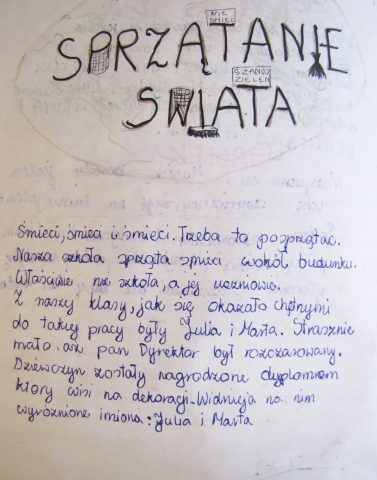 NIE
ŚMIEĆ
SPRZĄTANIE
SZANUJ
ZIELEŃ
ŚWIATA
Śmieci, śmieci i śmieci. Trzeba to posprzątać.
Nasza szkoła sprząta śmieci wokół budynku.
Właściwie nie szkoła, a jej uczniowie.
Z naszy klasy, jak się okazało chętnymi
do takiej pracy były Julia i Marta. Strasznie
mało. aż pan Dyrektor był rozczarowany.
Dziewczyn zostały nagrodzone dyplomem
który wisi na dekoracji. Widnieją na nim
wyróżnione imiona: Julia i Marta